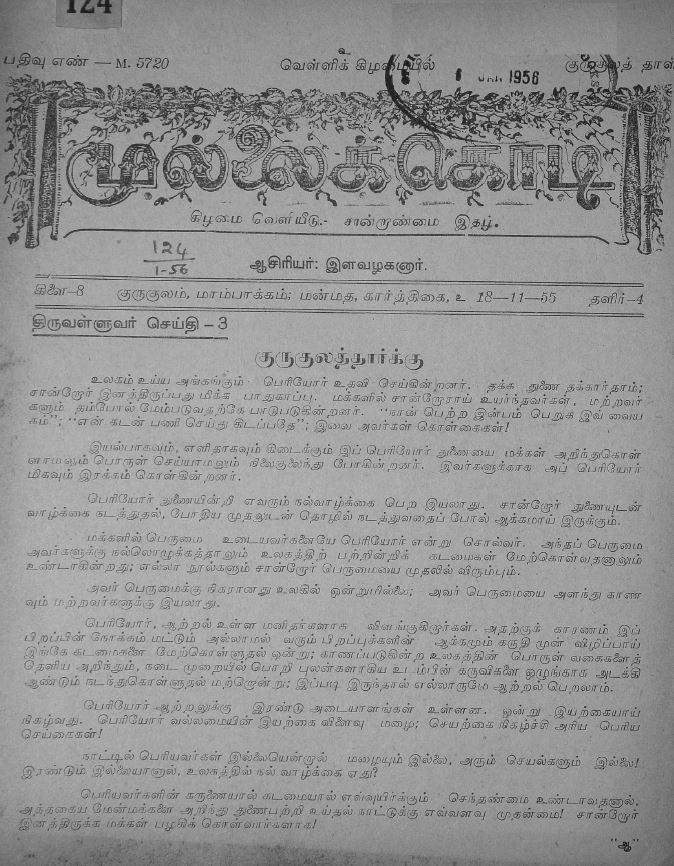 124
உ
பதிவு எண் — M. 5720 வெள்ளிக் கிழமையில் குருகுலத் தாள்
1956
முல்லைக்கொடி
கிழமை வெளியீடு.- சான்றாண்மை இதழ்.
124
1-56
ஆசிரியர்: இளவழகனார்.
கிளை-8 குருகுலம், மாம்பாக்கம்; மன்மத, கார்த்திகை, உ 18—11—55 தளிர்-4
திருவள்ளுவர் செய்தி - 3
குருகுலத்தார்க்கு
உலகம் உய்ய அங்கங்கும் பெரியோர் உதவி செய்கின்றனர். தக்க துணை தக்கார்தாம்;
சான்றோர் இனத்திருப்பது மிக்க பாதுகாப்பு. மக்களில் சான்றோராய் உயர்ந்தவர்கள், மற்றவர்
களும் தம்போல் மேம்படுவதற்கே பாடுபடுகின்றனர். “நான் பெற்ற இன்பம் பெறுக இவ் வைய
கம்”; “என் கடன் பணி செய்து கிடப்பதே”; இவை அவர்கள் கொள்கைகள்!
இயல்பாகவும், எளிதாகவும் கிடைக்கும் இப் பெரியோர் துணையை மக்கள் அறிந்துகொள்
ளாமலும் பொருள் செய்யாமலும் நிலைகுலைந்து போகின்றனர். இவர்களுக்காக அப் பெரியோர்
மிகவும் இரக்கம் கொள்கின்றனர்.
பெரியோர் துணையின்றி எவரும் நல்வாழ்க்கை பெற இயலாது. சான்றோர் துணையுடன்
வாழ்க்கை நடத்துதல், போதிய முதலுடன் தொழில் நடத்துவதைப் போல் ஆக்கமாய் இருக்கும்.
மக்களில் பெருமை உடையவர்களையே பெரியோர் என்று சொல்வர். அந்தப் பெருமை
அவர்களுக்கு நல்லொழுக்கத்தாலும் உலகத்திற் பற்றின்றிக் கடமைகள் மேற்கொள்வதனாலும்
உண்டாகின்றது; எல்லா நூல்களும் சான்றோர் பெருமையை முதலில் விரும்பும்.
அவர் பெருமைக்கு நிகரானது உலகில் ஒன்றுமில்லை; அவர் பெருமையை அளந்து காண
வும் மற்றவர்களுக்கு இயலாது.
பெரியோர், ஆற்றல் உள்ள மனிதர்களாக விளங்குகிறார்கள். அதற்குக் காரணம் இப்
பிறப்பின் நோக்கம் மட்டும் அல்லாமல் வரும் பிறப்புக்களின் ஆக்கமும் கருதி முன் விழிப்பாய்
இங்கே கடமைகளை மேற்கொள்ளுதல் ஒன்று; காணப்படுகின்ற உலகத்தின் பொருள் வகைகளைத்
தெளிய அறிந்தும், நடை முறையில் பொறி புலன்களாகிய உடம்பின் கருவிகளை ஒழுங்காக அடக்கி
ஆண்டும் நடந்துகொள்ளுதல் மற்றொன்று; இப்படி இருந்தால் எல்லாருமே ஆற்றல் பெறலாம்.
பெரியோர் ஆற்றலுக்கு இரண்டு அடையாளங்கள் உள்ளன. ஒன்று இயற்கையாய்
நிகழ்வது. பெரியோர் வல்லமையின் இயற்கை விளைவு மழை; செயற்கை நிகழ்ச்சி அரிய பெரிய
செய்கைகள்!
நாட்டில் பெரியவர்கள் இல்லையென்றால் மழையும் இல்லை, அரும் செயல்களும் இல்லை!
இரண்டும் இல்லையானால், உலகத்தில் நல் வாழ்க்கை ஏது?
பெரியவர்களின் கருணையால் கடமையால் எவ்வுயிர்க்கும் செந்தண்மை உண்டாவதனால்,
அத்தகைய மேன்மக்களை அறிந்து துணைபற்றி உய்தல் நாட்டுக்கு எவ்வளவு முதன்மை! சான்றோர்
இனத்திருக்க மக்கள் பழகிக் கொள்வார்களாக!
“ஆ”